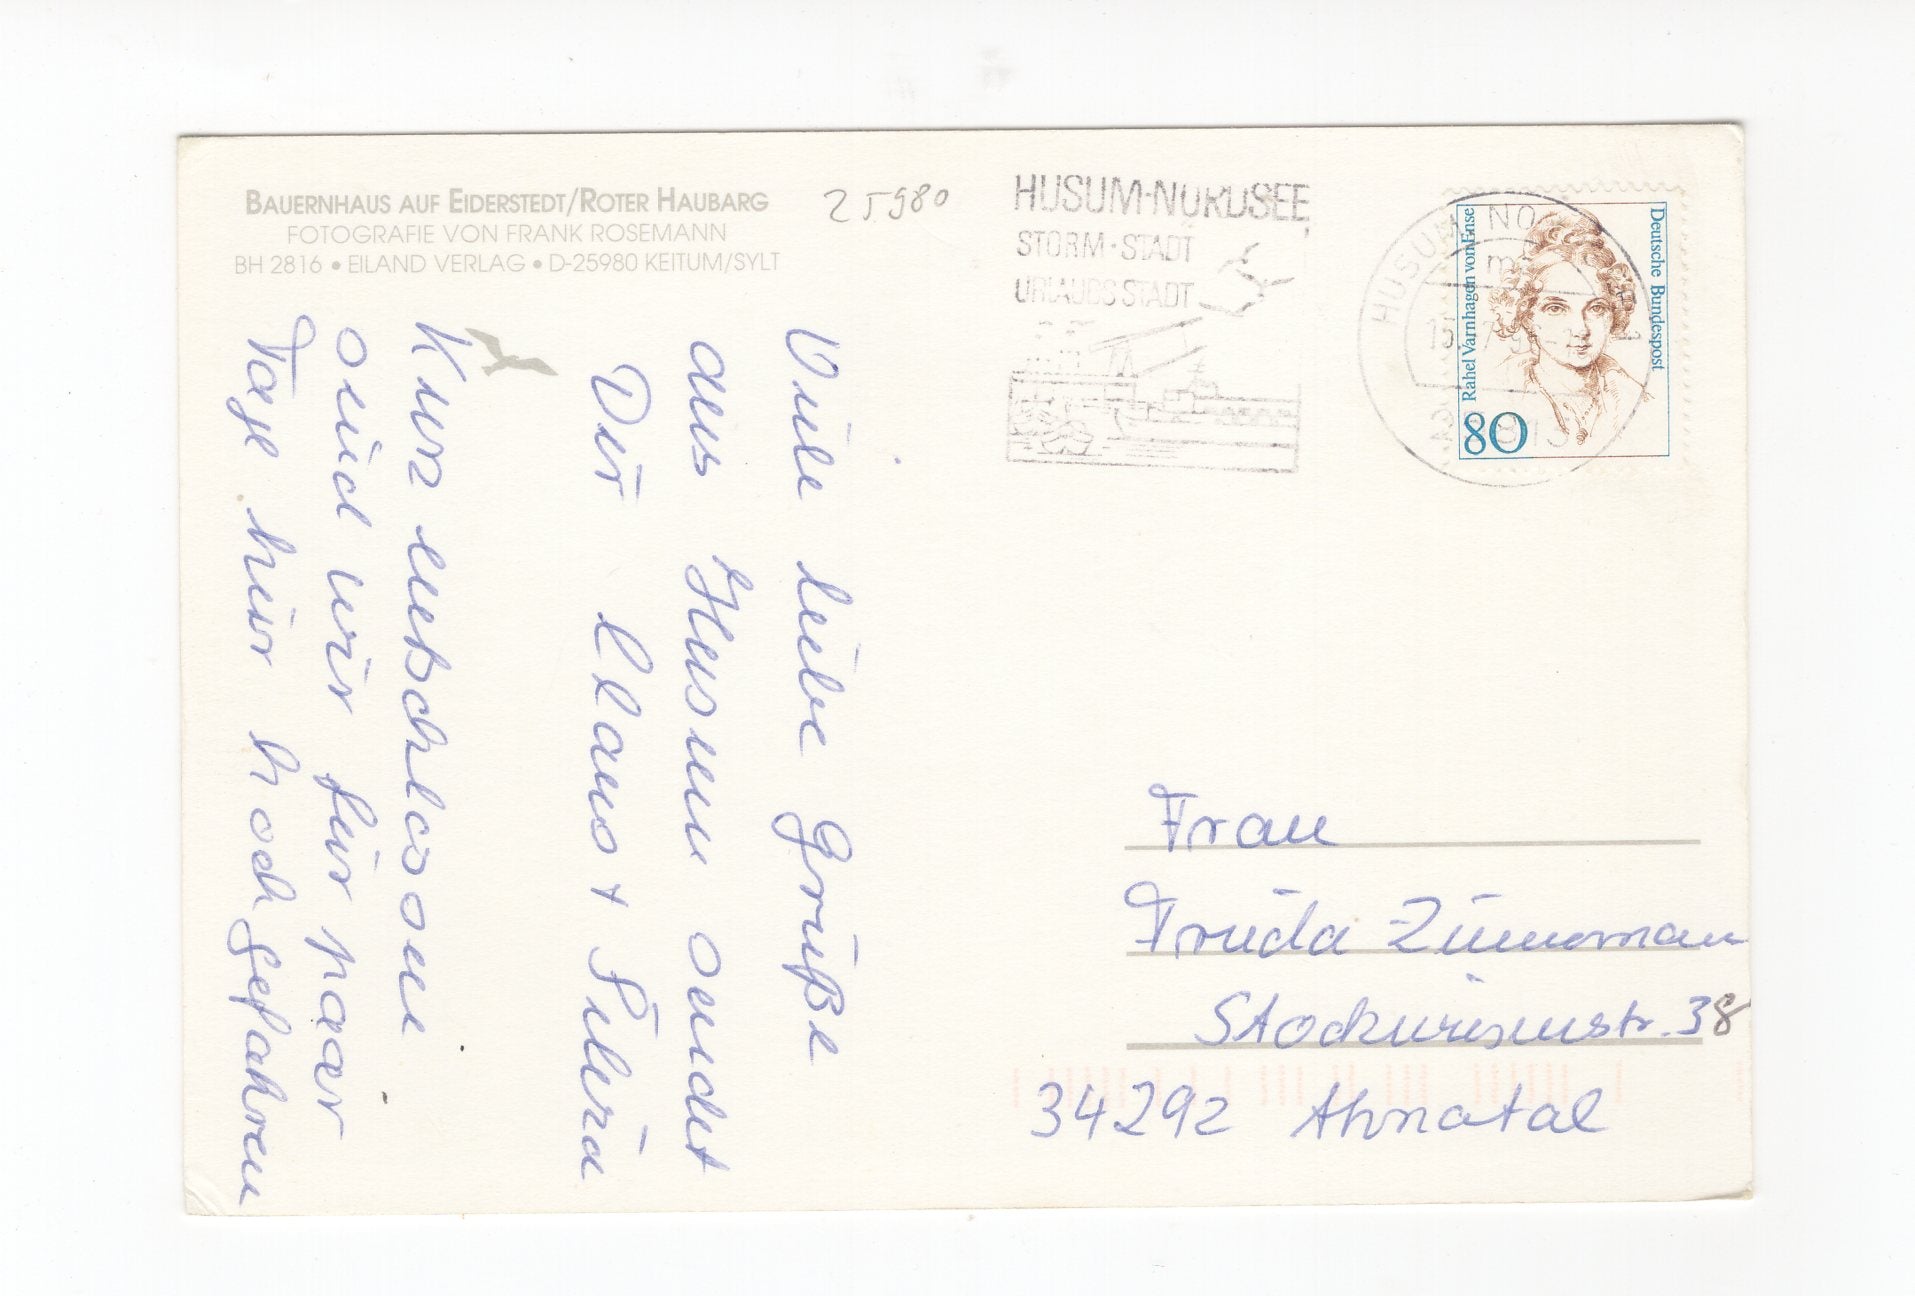 BAUERNHAUS AUF EIDERSTEDT/ROTER HAUBARG
FOTOGRAFIE VON FRANK ROSEMANN
BH 2816 • EILAND VERLAG • D-25980 KEITUM/SYLT
25980
HUSUM-NORDSEE
STORM-STADT
URLAUBSSTADT
HUSUM, NO
Rahel Varnhagen von Ense
Deutsche Bundespost
80
Viele liebe Grüße
aus Husum sendet
Dir Claus + Silvia
Kurz entschlossen
sind wir für paar
Tage hier hoch gefahren
Frau
Frieda Zimmerman
Stockwiesenstr. 38
34292 Ahnatal